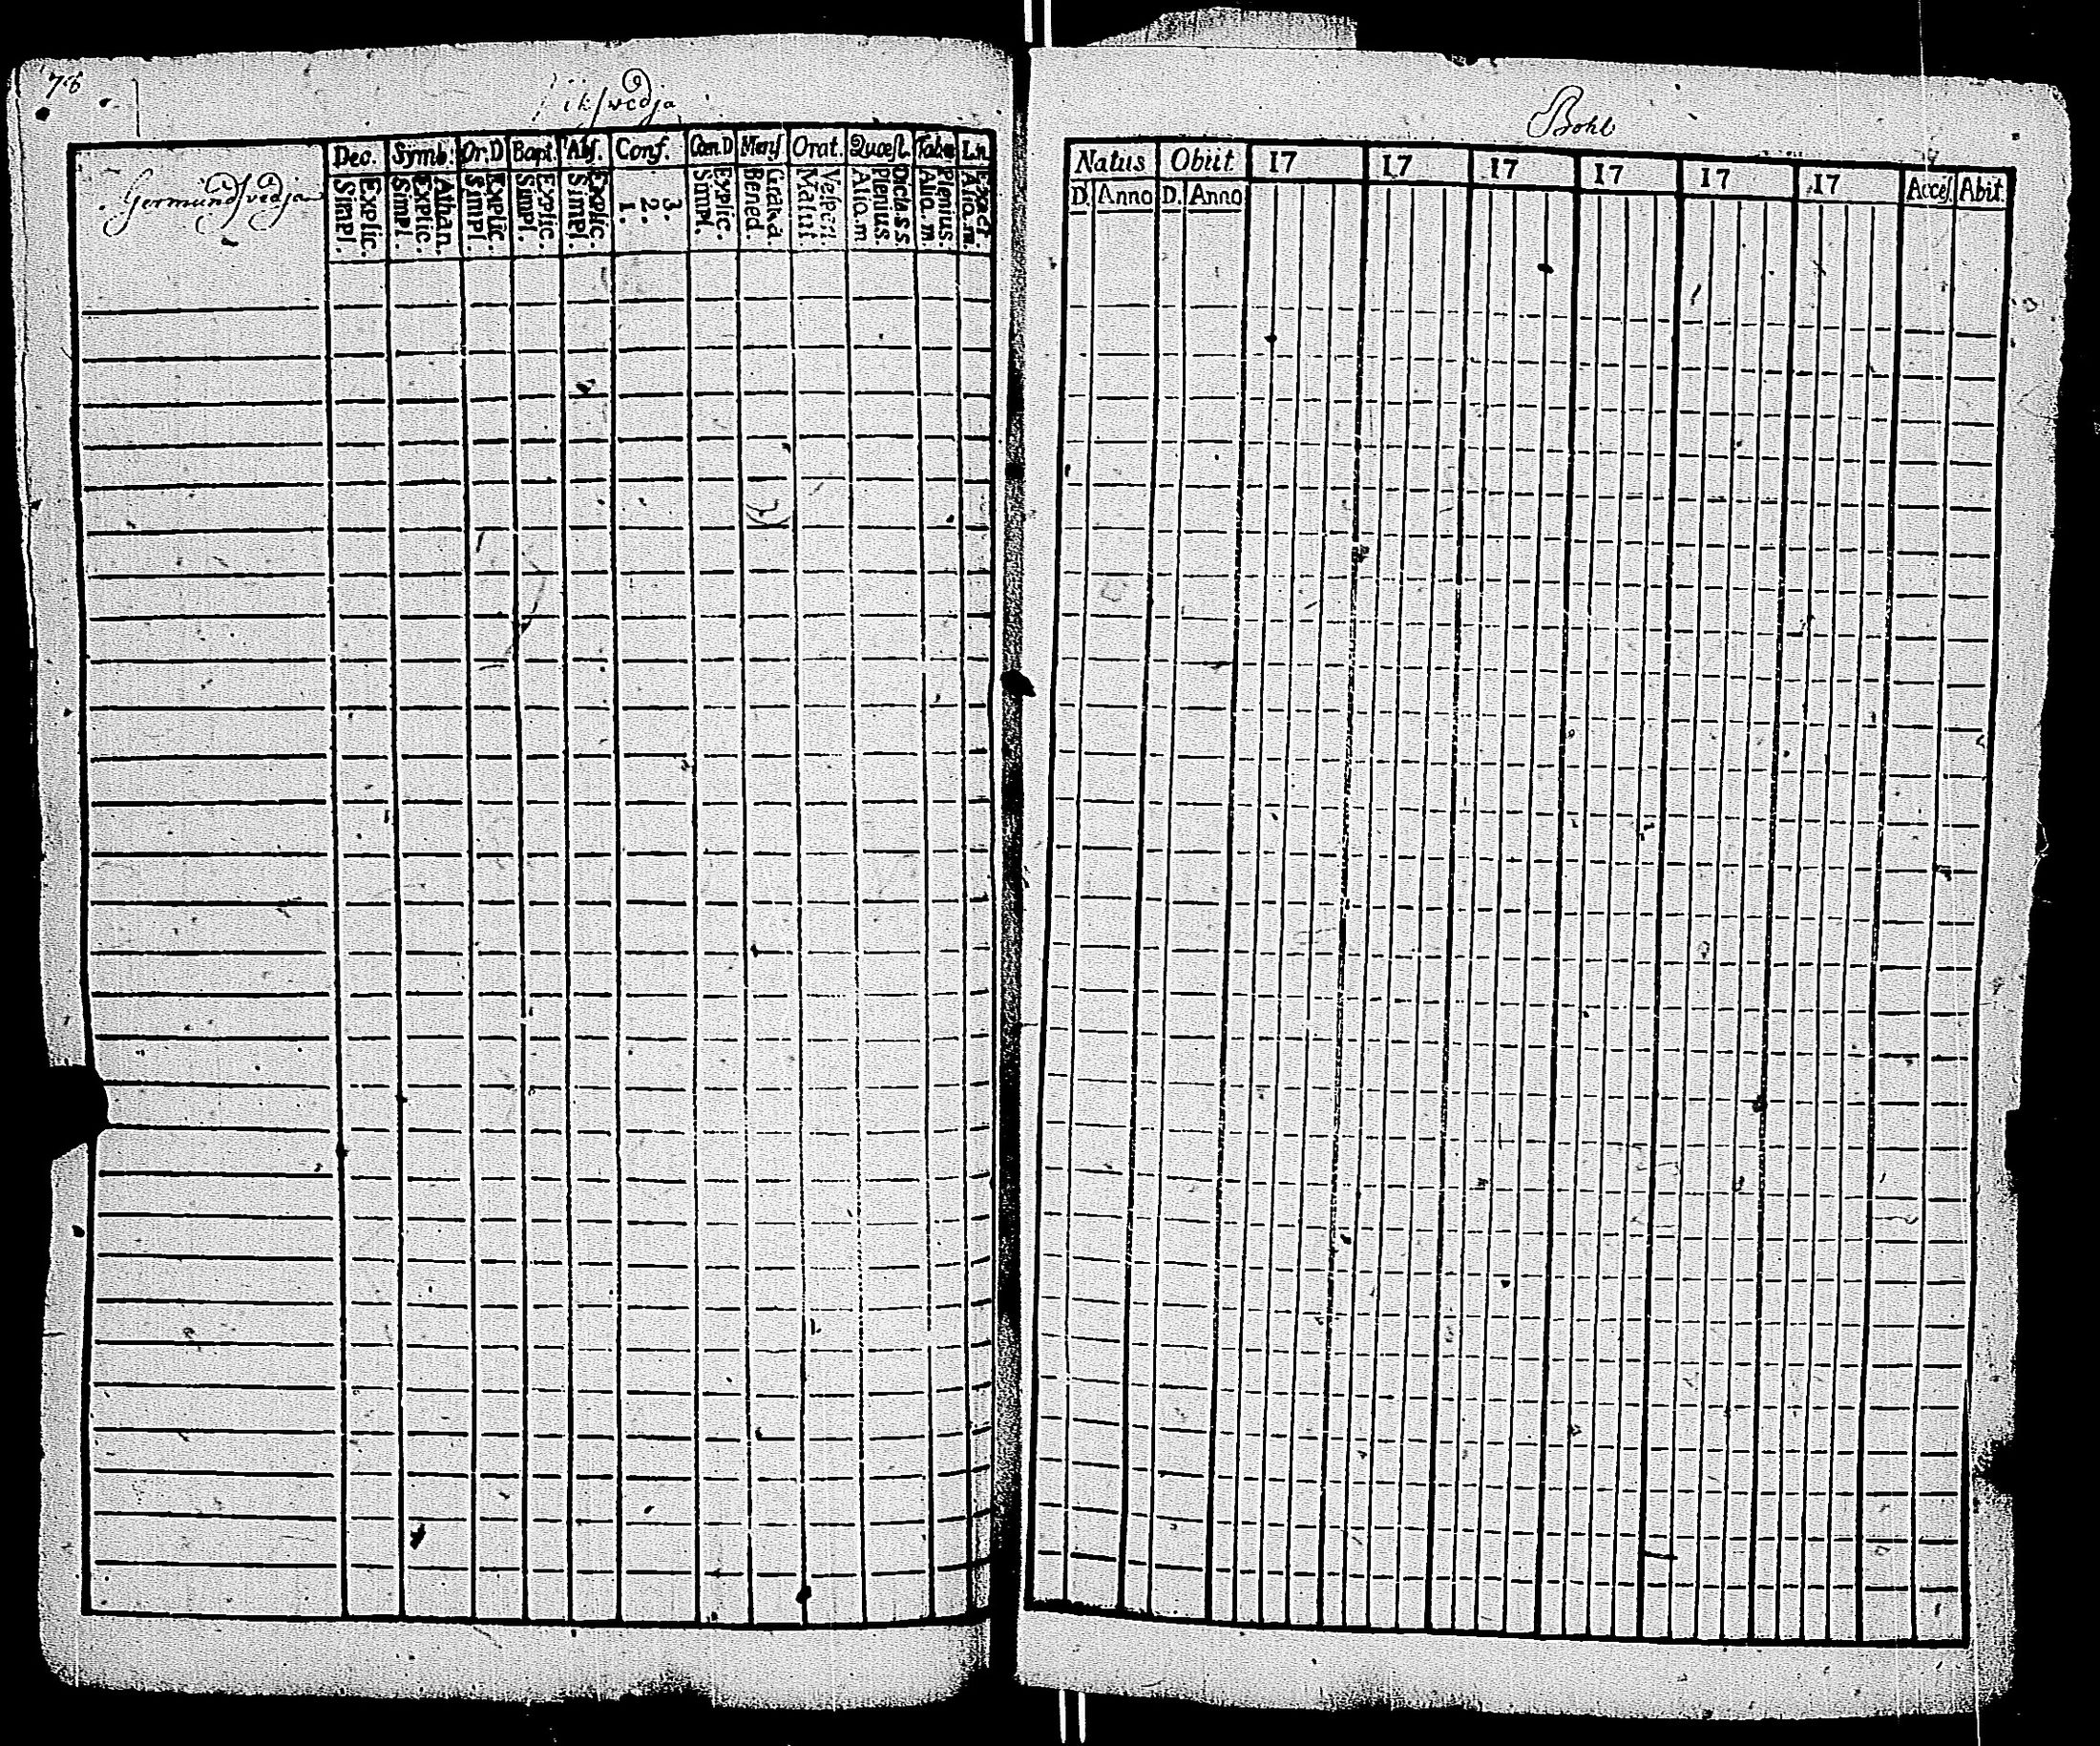 76
ikſvedja
Bohl
Germundſvedja
Dec. Symb. Or.D Bapt. Abſ. Conf. Cœn.D Menſ Orat. Quæſt. Tabu
Simpl. Explic. Simpl. Explic. Athan. Simpl. Explic. Simpl. Explic. Simpl. Explic. 1. 2. 3. Simpl. Explic. Bened. Grat.a. Matut. Veſpert. Aliq.m. Plenius. Dicta.s.s. Aliq.m. Plenius. Aliq.m.
Natus Obiit 17 17 17 17 17 17 Acceſ. Abit.
D. Anno D. Anno